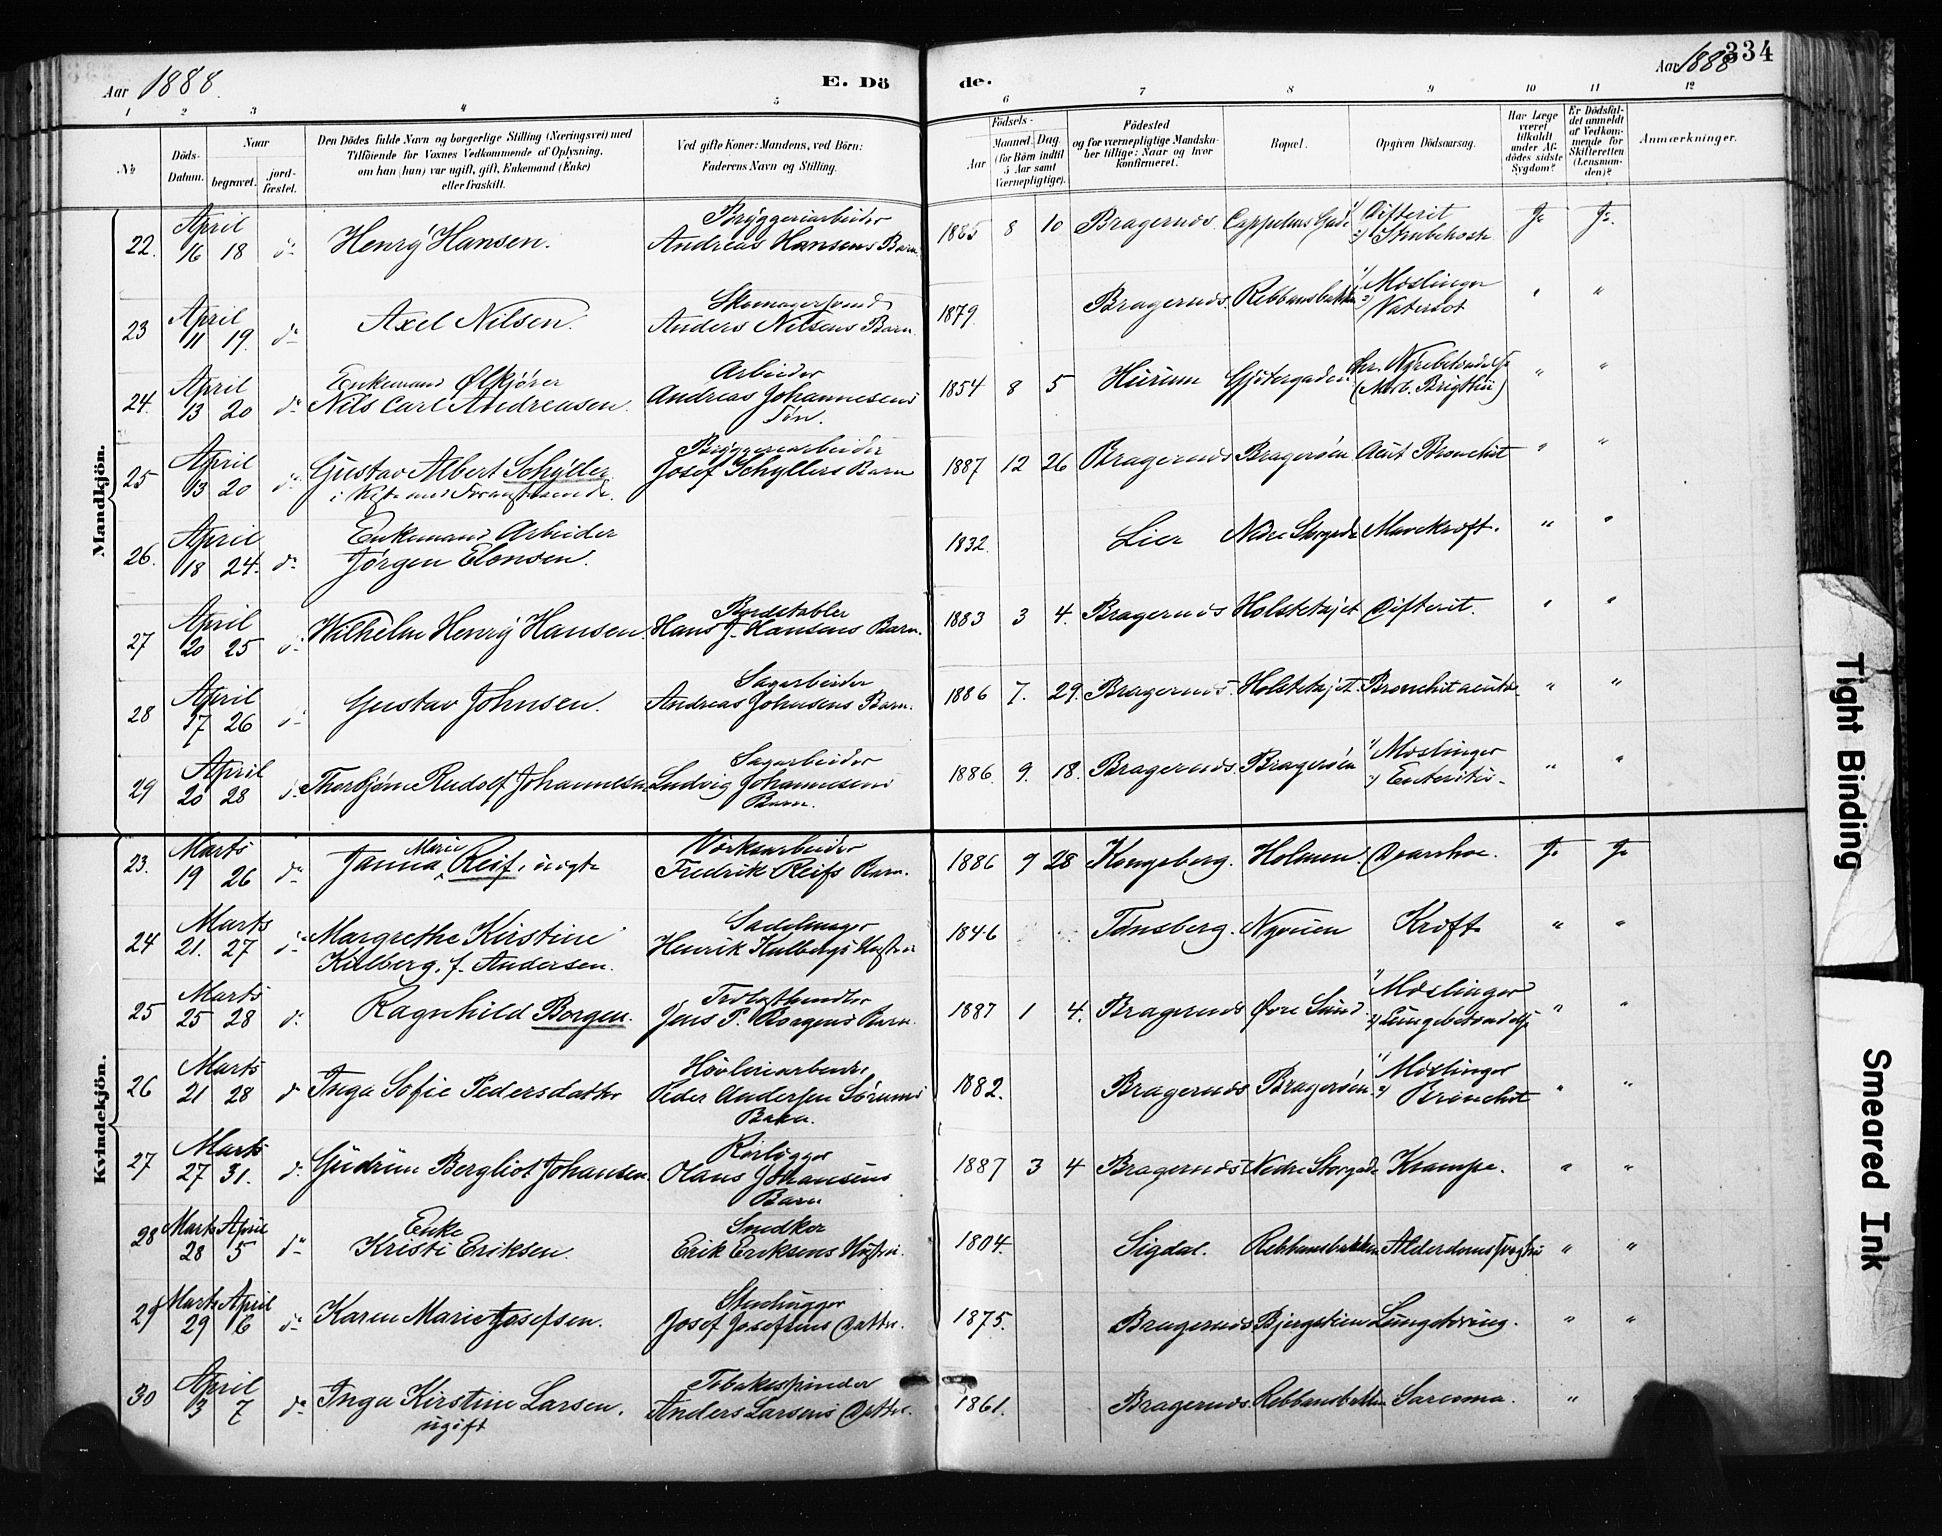 334
Aar 1888. E. Dö
de. Aar 1888
1 2 3 4 5 6 7 8 9 10 11 12
No
Döds-Datum.
Naar begravet. jordfæstet.
Den Dödes fulde Navn og borgerlige Stilling (Næringsvei) med
Tilföiende for Voxnes Vedkommende af Oplysning,
om han (hun) var ugift, gift, Enkemand (Enke)
eller fraskilt.
Ved gifte Koner: Mandens, ved Börn:
Faderens Navn og Stilling.
Födsels-
Aar Maaned. Dag.
(for Börn indtil
5 Aar samt
Værnepligtige).
Födested
og for værnepligtige Mandskaber tillige: Naar og hvor
konfirmeret.
Bopæl.
Opgiven Dödsaarsag.
Har Læge været tilkaldt under Afdödes sidste Sygdom?
Er Dödsfaldet anmeldt af Vedkommende for Skifteretten (Lensmanden)?
Anmærkninger.
Mandkjön.
22. April 16 18 do Henry Hansen. Bryggeriarbeider Andreas Hansens Barn 1885 8 10 Bragernæs. Cappelens Gade 1) Difterit 2) Strubehoste Ja Ja.
23 April 11 19. do Axel Nilsen. Skomagersvend Anders Nilsens Barn 1879. Bragernæs. Rebbansbakken 1) Mæslinger 2) Vatersot " "
24. April 13 20 do Enkemand Ølkjører Nils Carl Andreasen. Arbeider Andreas Johannesens Søn. 1854 8 5 Hurum Gjetergaden chr. Nyrebetændelse (Morb. Brigthii) " "
25 April 13 20 do Gustav Albert Schyller Bryggeriarbeider Josef Schyllers Barn 1887 12 26 Bragernæs Bragerøen Acut Bronchit " "
26. April 18 24. do Enkemand Arbeider Jørgen Elonsen. 1832. Lier Nedre Storgade Mavekræft. " "
27 April 20 25 do Wilhelm Henry Hansen. Bordstabler Hans J. Hansens Barn. 1883 3 4. Bragernæs Holstetøjet Difterit. " "
28 April 17 26 do Gustav Johnsen. Sagarbeider Andreas Johnsens Barn. 1886 7. 29. Bragernæs. Holstetøjet. Bronchit acuta " "
29 April 20 28 do Thorbjørn Rudolf Johannesen Sagarbeider Ludvig Johannesens Barn. 1886. 9. 18. Bragernæs. Bragerøen 1) Mæslinger 2) Enteritis. " "
Kvindekjön.
23. Marts 19 26 do Janna Marie Reif, uægte Værksarbeider Fredrik Reifs Barn. 1886 9 28 Kongsberg. Holmen. Diarrhoe. Ja Ja
24 Marts 21. 27 do Margrethe Kirstine Kulberg, f. Andersen. Sadelmager Henrik Kulbergs Hustru 1846 Tønsberg. Nyveien Kræft " "
25 Marts 25 28 do Ragnhild Borgen. Trælasthandler Jens P. Borgens Barn. 1887 1 4. Bragernæs Øvre Sund. 1) Mæslinger 2) Lungebetændelse " "
26 Marts 21 28 do Inga Sofie Pedersdatter Høvleriarbeider Peder Andersen Sørums Barn. 1882. Bragernæs Bragerøen 1) Mæslinger 2) Bronchit " "
27 Marts 27 31. do Gudrun Bergliot Johansen. Rørlægger Olaus Johansens Barn 1887 3 4 Bragernæs Nedre Storgade Krampe. " "
28 Marts 28 April 5 do Enke Kristi Eriksen. Snedker Erik Eriksens Hustru. 1804. Sigdal. Rebbansbakken Alderdomssvaghed " "
29 Marts 29 April 6 do Karen Marie Josefsen. Stenhugger Josef Josefsens Datter. 1875. Bragernæs Bjergstien Lungetæring. " "
30 April 3 7 do Inga Kirstine Larsen. ugift Tobakspinder Anders Larsens Datter. 1861. Bragernæs. Rebbansbakken Sarcoma. " "
Tight Binding
Smeared Ink